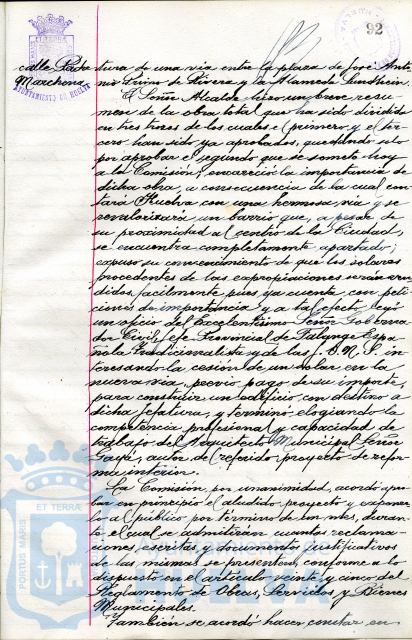 92
AYUNTAMIENTO DE HUELVA
calle Padre
Marchena
tura de una vía entre la plaza de José Anto
nio Primo de Rivera y la Alameda Sundheim.
El Señor Alcalde hizo un breve resu-
men de la obra total que ha sido dividida
en tres trozos de los cuales el primero y el ter-
cero han sido ya aprobados, quedando solo
por aprobar el segundo que se somete hoy
a la Comisión; encareció la importancia de
dicha obra, a consecuencia de la cual con-
tará Huelva con una hermosa vía y se
revalorizará un barrio que, a pesar de
su proximidad al centro de la Ciudad,
se encuentra completamente apartado;
expuso su convencimiento de que los solares
procedentes de las expropiaciones serán ven-
didos fácilmente pues ya cuenta con peti-
ciones de importancia y a tal efecto leyó
un oficio del Excelentísimo Señor Goberna-
dor Civil, Jefe Provincial de Falange Espa-
ñola Tradicionalista y de las J.O.N.S. in-
teresando la cesión de un solar en la
nueva vía, previo pago de su importe,
para construir un edificio con destino a
dicha Jefatura, y terminó elogiando la
competencia profesional y capacidad de
trabajo del Arquitecto Municipal Señor
autor del referido proyecto de refor-
ma interior.
La Comisión, por unanimidad, acordó apro-
bar en principio el aludido proyecto y exponer-
lo al público por término de un mes, duran-
te el cual se admitirán cuantas reclama-
ciones escritas y documentos justificativos
de las mismas se presenten, conforme a lo
dispuesto en el artículo veinte y cinco del
Reglamento de Obras, Servicios y Bienes
Municipales.
También se acordó hacer constar en
PORTUS MARIS
ET TERRÆ